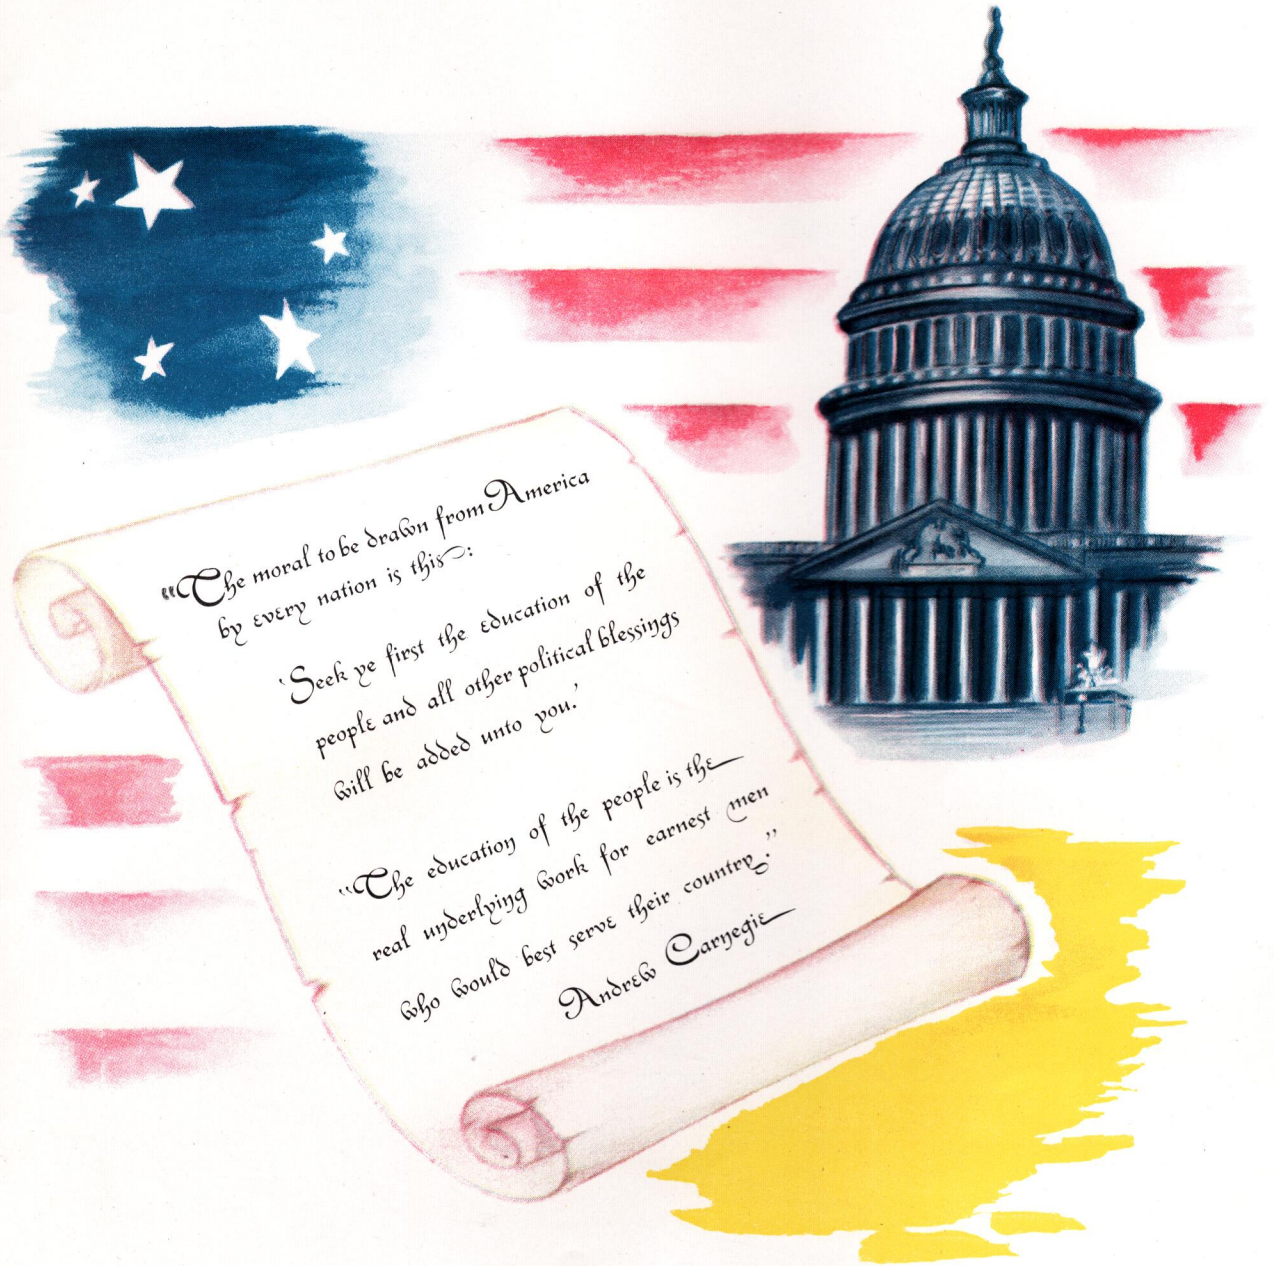 “The moral to be drawn from America
by every nation is this:
‘Seek ye first the education of the
people and all other political blessings
will be added unto you.’
“The education of the people is the
real underlying work for earnest men
who would best serve their country.”
Andrew Carnegie